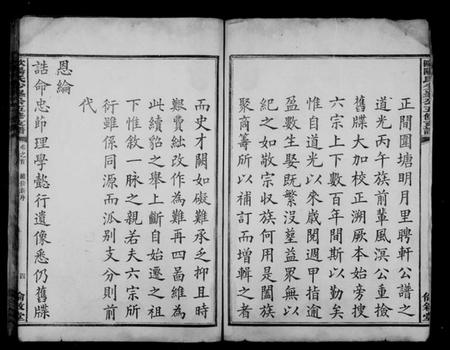 正間圍塘明月里聘軒公譜之
道光丙午族前輩風溟公重檢
舊牒大加校正溯厥本始旁搜
六宗上下數百年間斯以勤矣
惟自道光以來歲閱週甲指逾
數兼生娶既繁沒塟益眾無以
紀之如敬宗收族何用是闔族
聚商籌所以補訂而增輯之者
而史才闕如礙難承乏抑且時
艱費絀改作為難再四啚維為
此續貂之舉上斷自始遷之祖
下惟敘一脉之親若夫六宗所
衍雖保同源而派别支分則前
代
恩綸
誥命忠節理學懿行遺像悉仍舊牒
卷之首
四